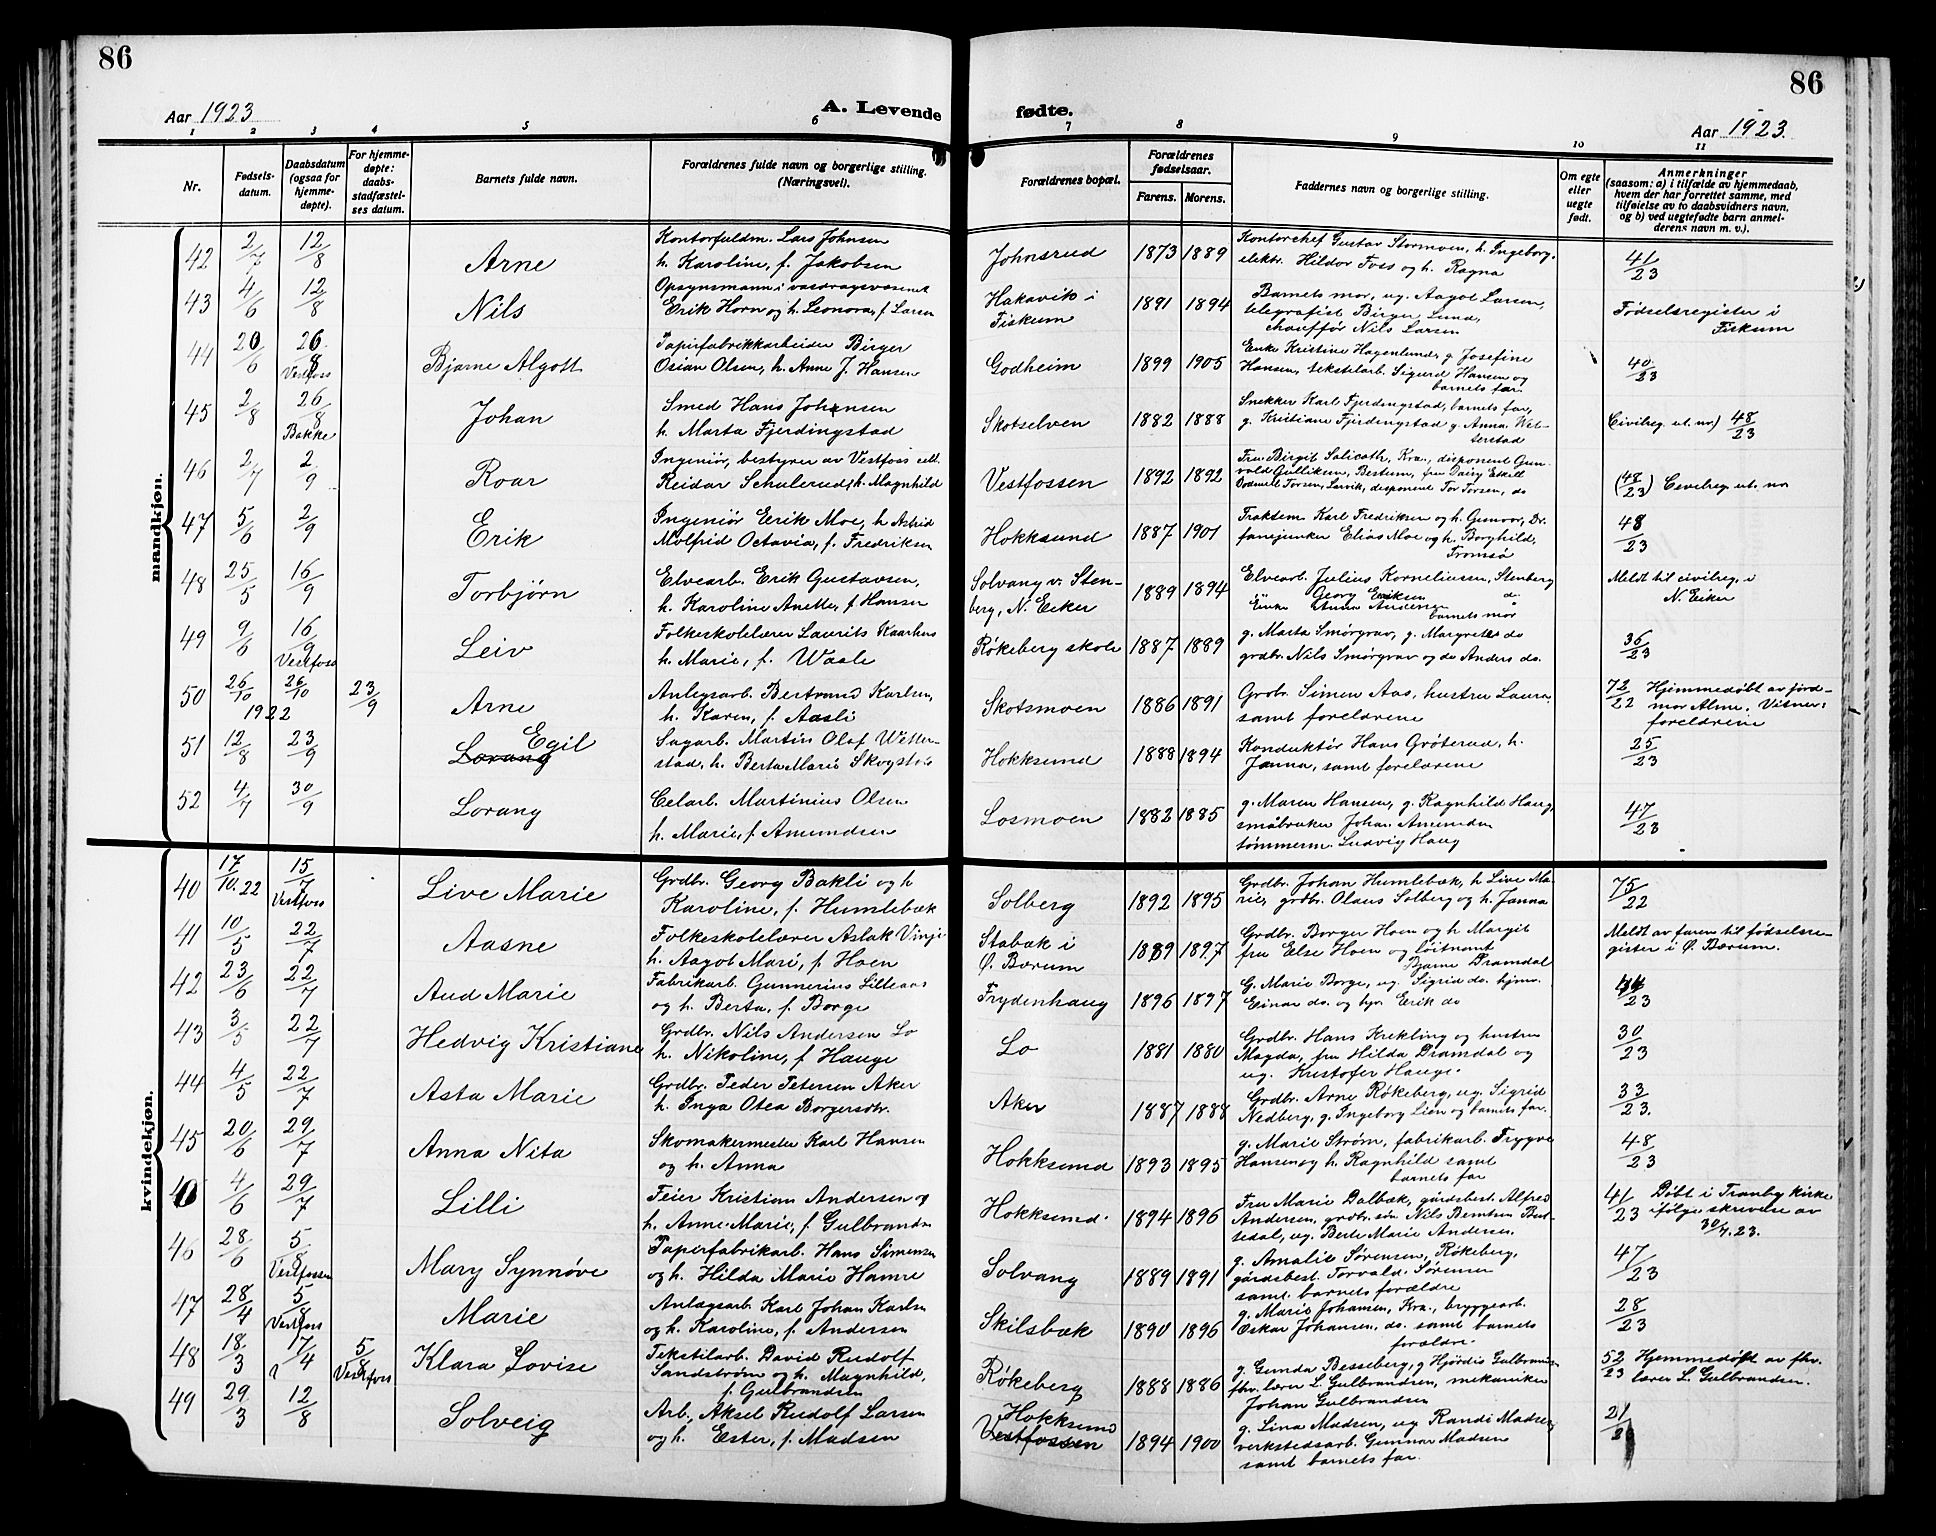 86
86
Aar 1923
A. Levende fødte.
Aar 1923.
1 2 3 4 5 6 7 8 9 10 11
Nr.
Fødsels-
datum.
Daabsdatum
(ogsaa for
hjemme-
døpte).
For hjemme-
døpte:
daabs-
stadfæstel-
ses datum.
Barnets fulde navn.
Forældrenes fulde navn og borgerlige stilling.
(Næringsvei).
Forældrenes bopæl.
Forældrenes
fødselsaar.
Farens. Morens.
Faddernes navn og borgerlige stilling.
Om egte
eller
uegte
født.
Anmerkninger
(saasom: a) i tilfælde av hjemmedaab,
hvem der har forrettet samme, med
tilføielse av to daabsvidners navn,
og b) ved uegtefødte barn anmel-
derens navn m. v.).
mandkjøn.
42 2/7 12/8 Arne
Kontorfuldm. Lars Johnsen
h. Karoline, f. Jakobsen
Johnsrud 1873 1889
Kontorchef Gustav Stormoen, h. Ingeborg,
elektr. Hildor Foss og h. Ragna
41/23
43 4/6 12/8 Nils
Opsynsmann i vasdragsvesenet
Erik Horn og h. Leonora, f. Larsen
Hakavik i
Fiskum
1891 1894
Barnets mor, ug. Aagot Larsen,
telegrafist Birger Lund,
chauffør Nils Larsen
Fødselsregister i
Fiskum
44 20/6 26/8 Vestfoss Bjarne Algott
Papirfabrikkarbeider Birger
Osian Olsen, h. Anne J. Hansen
Godheim 1899 1905
Enke Kristine Hagenlund, g. Josefine
Hansen, tekstilarb. Sigurd Hansen og
barnets far.
40/23
45 2/8 26/8 Bakke Johan
Smed Hans Johansen
h. Marta Fjerdingstad
Skotselven 1882 1888
Snekker Karl Fjerdingstad, barnets far,
g. Kristiane Fjerdingstad g. Anna Wet-
terstad
Civilreg. ut. no) 48/23
46 2/7 2/9 Roar
Ingeniør, bestyrer av Vestfoss cell.
Reidar Schulerud, h. Magnhild
Vestfossen 1892 1892
Fru Birgit Salicath, Kra., disponent Gun-
vald Gulliksen, Bestum, fru Daisy Eskill
Torsen, Larvik, disponent Tor Torsen, do
(48/23) Civilreg. ut. no
47 5/6 2/9 Erik
Ingeniør Erik Moe, h Astrid
Molfrid Octavia, f. Fredriksen
Hokksund 1887 1901
Traktem. Karl Fredriksen og h. Gunvor, Dr.
fanejunker Elias Moe og h. Borghild,
Tromsø
48/23
48 25/5 16/9 Torbjørn
Elvearb. Erik Gustavsen,
h. Karoline Anette, f. Hansen
Solvang v. Sten-
berg, N. Eiker
1889 1894
Elvearb. Julius Korneliussen, Stenberg
" Georg Eriksen do
Enke Anna Andersen "
barnets mor
Meldt til civilreg. i
N. Eiker
49 9/6 16/9 Vestfoss Leiv
Folkeskolelærer Laurits Kaarhus
h. Marie, f. Waale
Røkeberg skole 1887 1889
g. Marta Smørgrav, g. Margrethe do
grdbr. Nils Smørgrav og do Anders do.
36/23
50 26/10 1922 26/10 23/9 Arne
Anlegsarb. Bertrand Karlsen,
h. Karen, f. Aasli
Skotsmoen 1886 1891
Grdbr. Simen Aas, hustru Laura
samt forelærene
72/22 Hjemmedøbt av jord-
mor Alme. Vitner:
forelærene
51 12/8 23/9 Egil
Lorang
Sagarb. Martin Olaf Wetter-
stad, h. Berta Marie Skogstoe
Hokksund 1888 1894
Konduktør Hans Grøterud, h.
Janna, samt forelærene
25/23
52 4/7 30/9 Lorang
Celarb. Martinius Olsen
h. Marie, f Amundsen
Losmoen 1882 1885
g. Maren Hansen, g. Ragnhild Haug,
småbruker Johan Amundsen
tømmerm. Ludvig Haug
47/23
kvindekjøn.
40 17/10.22 15/7 Vestfoss Live Marie
Grdbr. Georg Bakli og h
Karoline, f. Humlebæk
Solberg 1892 1895
Grdbr. Johan Humlebæk, h Live Ma-
rie, grdbr. Olaus Solberg og h. Janna
75/22
41 10/5 22/7 Aasne
Folkeskolelærer Aslak Vinje
h. Aagot Marie, f. Hoen
Stabæk i
Ø. Bærum
1889 1897
Grdbr. Borger Hoen og h Margit
fru Else Hoen og løitnant
Bjarne Dramdal
Meldt av faren til fødselsre-
gister i Ø. Bærum.
42 23/6 22/7 Aud Marie
Fabrikarb. Gunnerius Lilleaas
og h. Berta, f. Borge
Frydenhaug 1896 1897
G. Marie Borge, ug. Sigrid do. hjmv.
Einar do. og tjr. Erik do
44/23
43 3/5 22/7 Hedvig Kristiane
Grdbr. Nils Andersen Lo
h. Nikoline, f Hauge
Lo 1881 1880
Grdbr. Hans Krekling og hustru
Magda, fru Hilda Dramdal og
ug. Kristofer Hauge.
30/23
44 4/5 22/7 Asta Marie
Grdbr. Peder Petersen Aker
h. Inga Otea Borgersdtr.
Aker 1887 1888
Grdbr. Arne Røkeberg, ug. Sigrid
Nedberg, g. Ingeborg Lien og barnets far.
33/23.
45 20/6 29/7 Anna Nita
Skomakermester Karl Hansen
og h. Anna
Hokksund 1893 1895
g. Marie Strøm, fabrikarb. Trygve
Hansen og h. Ragnhild samt
barnets far
48/23
4/6 29/7 Lilli
Feier Kristian Andersen og
h. Anne-Marie, f. Gulbrands
Hokksund 1894 1896
Fru Marie Dalbæk, gårdsbest. Alfred
Andersen, grdbr. søn Nils Berntsen But-
tedal, ug. Berte Marie Andersen.
41/23 Døbt i Tranby kirke
ifølge skrivelse av
30/7.23.
46 28/6 5/8 Vestfossen Mary Synnøve
Papirfabrikarb. Hans Simensen
og h. Hilda Marie Hamre
Solvang 1889 1891
g. Amalie Sørensen, Røkeberg,
gårdsbest. Torvald Sørensen
samt barnets forældre
47/23
47 28/4 5/8 Vestfoss Marie
Anlægsarb. Karl Johan Karlsen
og h. Karoline, f. Andersen
Skilsbæk 1890 1896
g. Marie Johansen, Kra., bryggearb.
Oskar Johansen, do. samt barnets
forældre.
28/23
48 18/3 17/4 5/8 Vestfoss Klara Lovise
Tekstilarb. David Rudolf
Sandstrøm og h. Magnhild,
f. Gulbrandsen
Røkeberg 1888 1886
g. Gunda Besseberg, g Hjørdis Gulbrandsen
fhv. lærer L. Gulbrandsen, mekaniker
Johan Gulbrandsen
52/23 Hjemmedøbt av fhv.
lærer L. Gulbrandsen.
49 29/3 12/8 Solveig
Arb. Aksel Rudolf Larsen
og h. Ester, f. Madsen
Hokksund
Vestfossen
1894 1900
g. Lina Madsen, ug Randi Madsen,
verkstedsarb. Gunnar Madsen
samt barnets far.